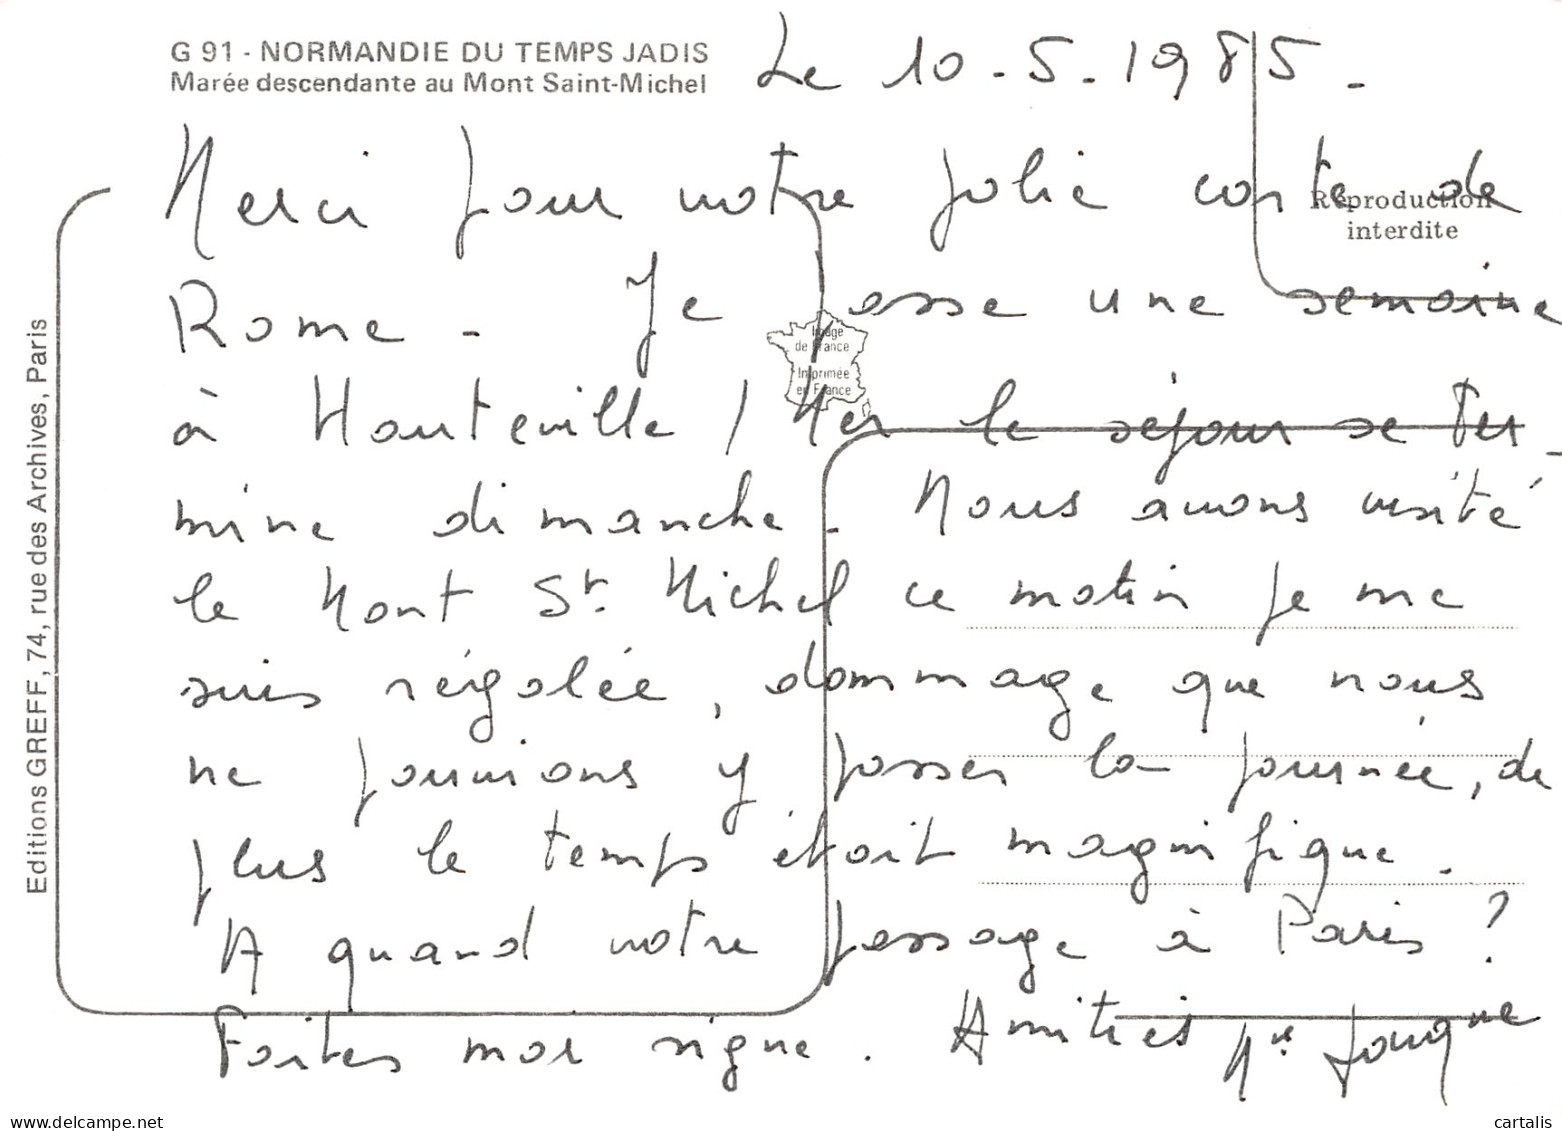 G 91 - NORMANDIE DU TEMPS JADIS
Marée descendante au Mont Saint-Michel
Le 10.5.1985.
Merci pour votre jolie carte de
Rome - Je passe une semaine
à Hauteville / Mer le séjour se ter-
mine dimanche. Nous avons visité
le Mont St. Michel ce matin je me
suis régalée, dommage que nous
ne pouvions y passer la journée, de
plus le temps était magnifique.
A quand votre passage à Paris ?
Faites moi signe. Amitiés
Reproduction
interdite
Image
de France
Imprimée
en France
Editions GREFF, 74, rue des Archives, Paris
www.delcampe.net
cartalis